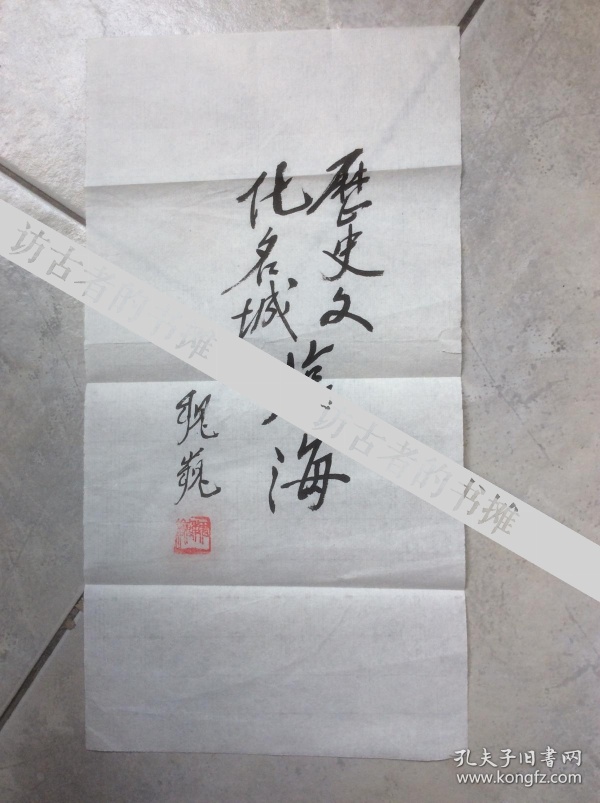 歷史文
化名城
海
魏巍
访古者的书摊
访古者的书摊
孔夫子旧书网
www.kongfz.com